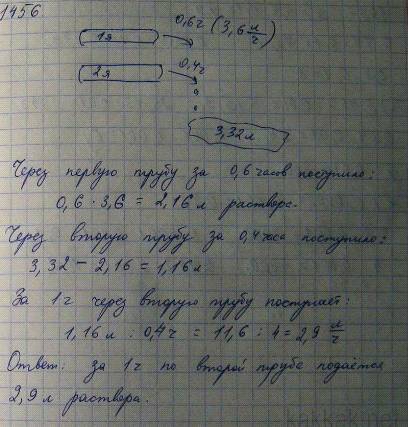 1456
0,6ч (3,6 л/ч)
1я
0,4ч
2я
3,32л
Через первую трубу за 0,6 часов поступило:
0,6 · 3,6 = 2,16 л раствора.
Через вторую трубу за 0,4 часа поступило:
3,32 - 2,16 = 1,16л
За 1ч через вторую трубу поступает:
1,16л : 0,4ч = 11,6 : 4 = 2,9 л/ч
Ответ: за 1ч по второй трубе подаётся
2,9 л раствора.
kakkak.net